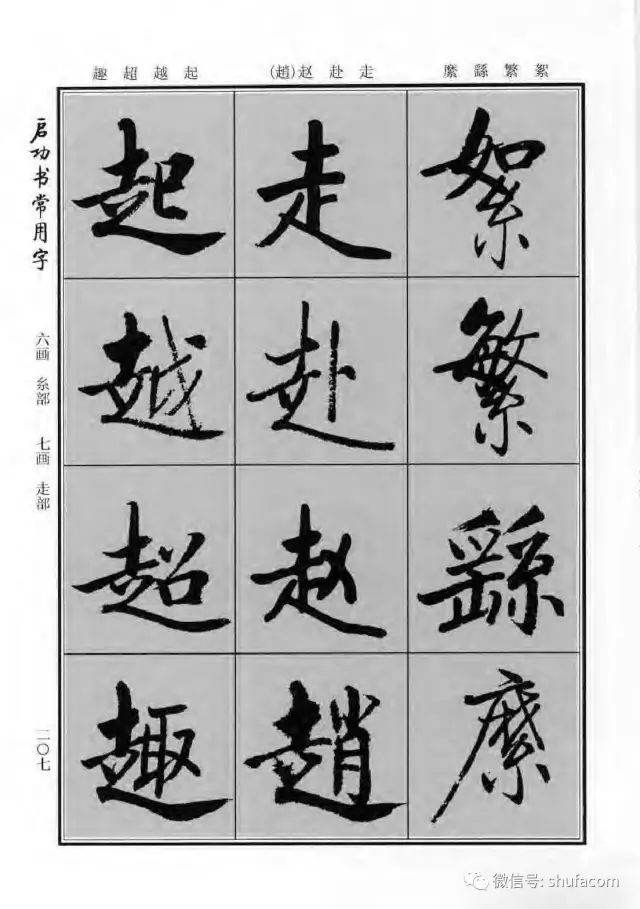 趣超越起
(趙)赵赴走
縻繇繁絮
启功书常用字
六画 糸部 七画 走部
二〇七
絮
繁
繇
縻
走
赴
赵
趙
起
越
超
趣
微信号: shufacom